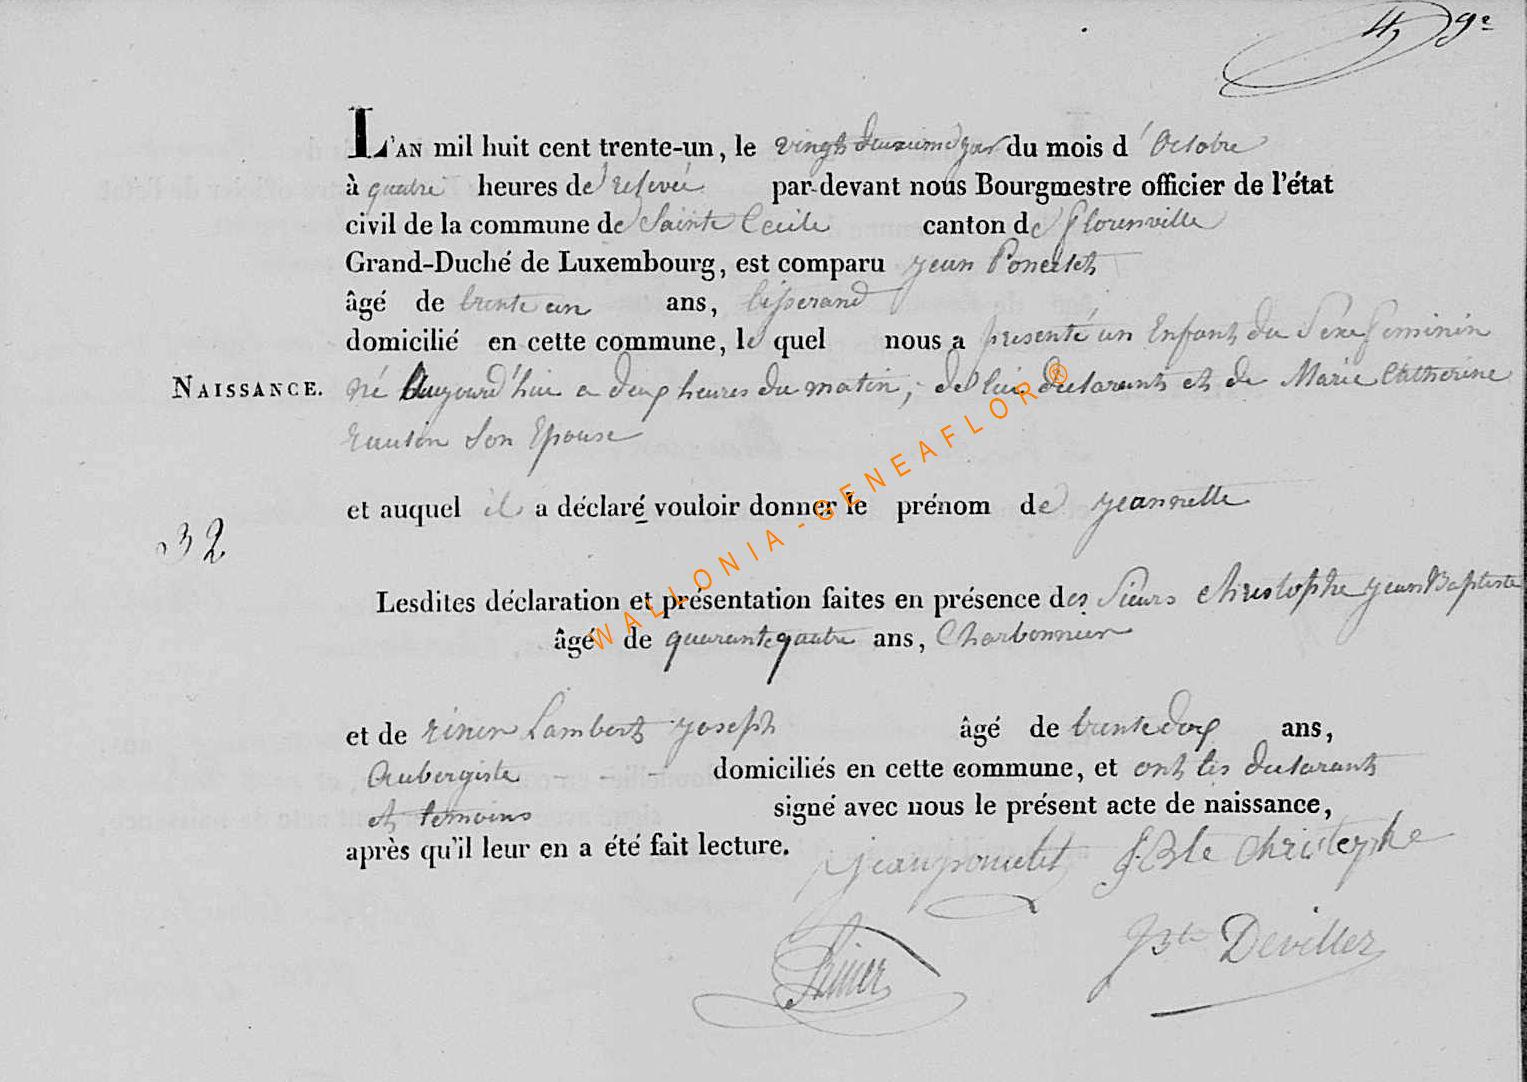 4 9e
L'AN mil huit cent trente-un, le vingt deuxieme jour du mois d'Octobre
à quatre heures de relevée par-devant nous Bourgmestre officier de l'état
civil de la commune de Sainte Cecile canton de Florenville
Grand-Duché de Luxembourg, est comparu jean Poncelet
âgé de trente un ans, tisserand
domicilié en cette commune, le quel nous a presenté un Enfant du Sexe feminin
NAISSANCE. né aujourd'hui a deux heures du matin, de lui declarant et de Marie Catherine
son Epouse
et auquel il a déclaré vouloir donner le prénom de jeannette
32
Lesdites déclaration et présentation faites en présence des Sieurs christophe jean Baptiste
âgé de quarante quatre ans, Charbonnier
et de Lambert joseph âgé de trente deux ans,
Aubergiste - - - domiciliés en cette commune, et ont les declarant
et temoins signé avec nous le présent acte de naissance,
après qu'il leur en a été fait lecture.
jean poncelet J Bte Christophe
Jbte Deviller
WALLONIA-GENEAFLOR®